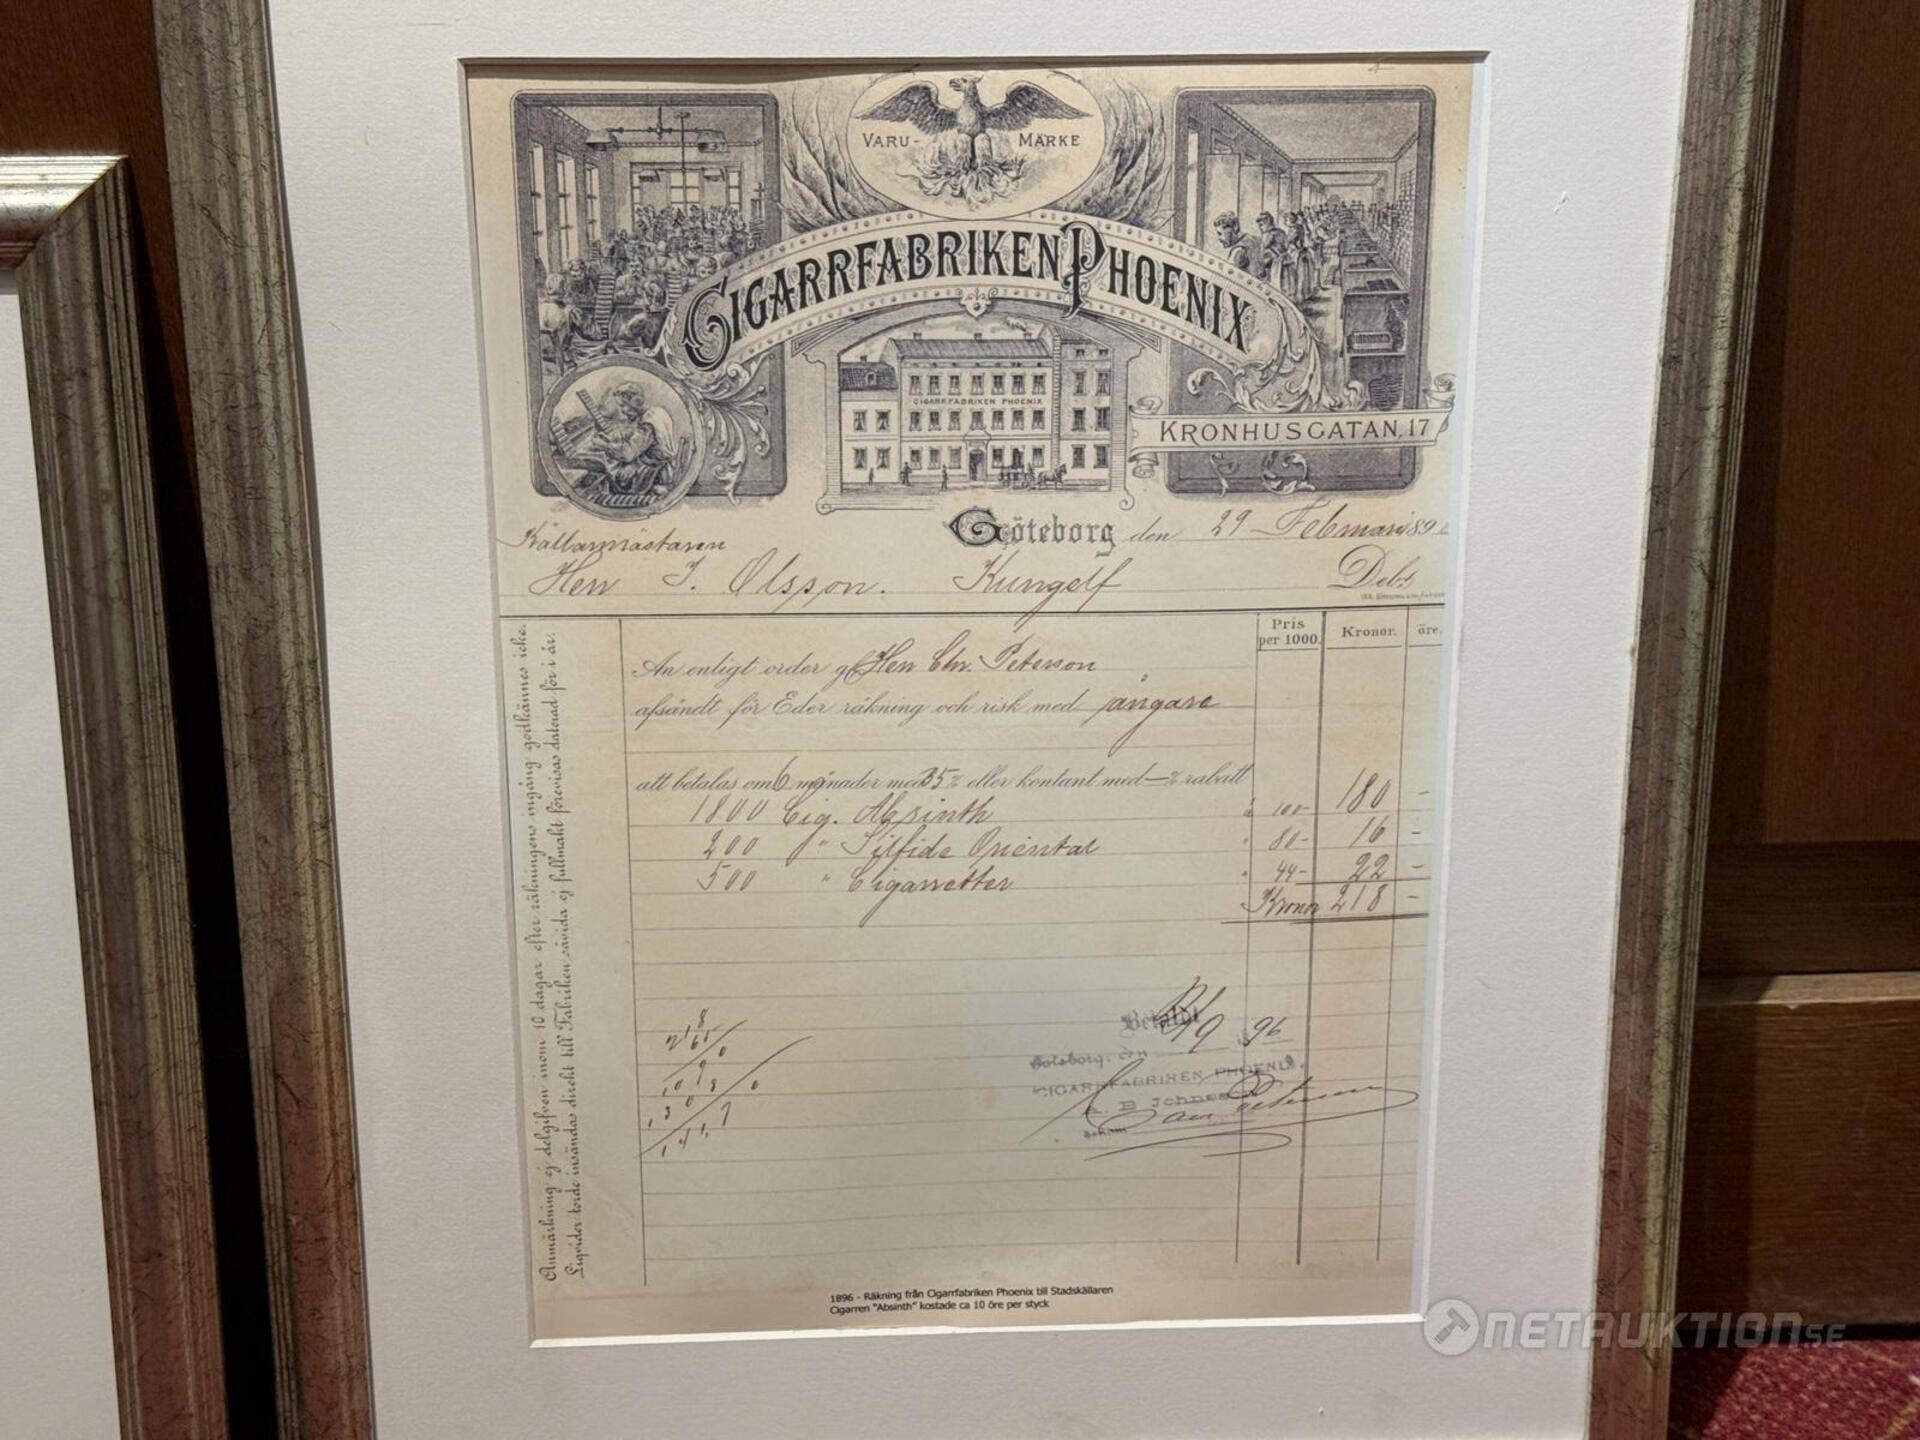 VARU- MÄRKE
CIGARRFABRIKEN PHOENIX
CIGARRFABRIKEN PHOENIX
KRONHUSGATAN, 17
Göteborg den 29 Februari 189
Källarmästaren
Herr J. Olsson. Kungelf Debt
Pris per 1000. Kronor. öre.
An enligt order gf Herr Chr. Peterson
afsändt för Eder räkning och risk med ångare
att betalas om 6 månader med 35 % eller kontant med — % rabatt
1800 Cig. Absinth à 100- 180 -
200 " Silfide Oriental " 80- 16 -
500 " Cigarretter " 44- 22 -
Kronor 218 -
Anmärkning ej delgifven inom 10 dagar efter räkningens ingång godkännes icke.
Liqvider torde insändas direkt till Fabriken såvida ej fullmakt förevisas daterad för i år.
Betaldt
9 96
Göteborg, den
CIGARRFABRIKEN PHOENIX.
A. B Johnes
1896 - Räkning från Cigarrfabriken Phoenix till Stadskällaren
Cigarren "Absinth" kostade ca 10 öre per styck
NETAUKTION.SE